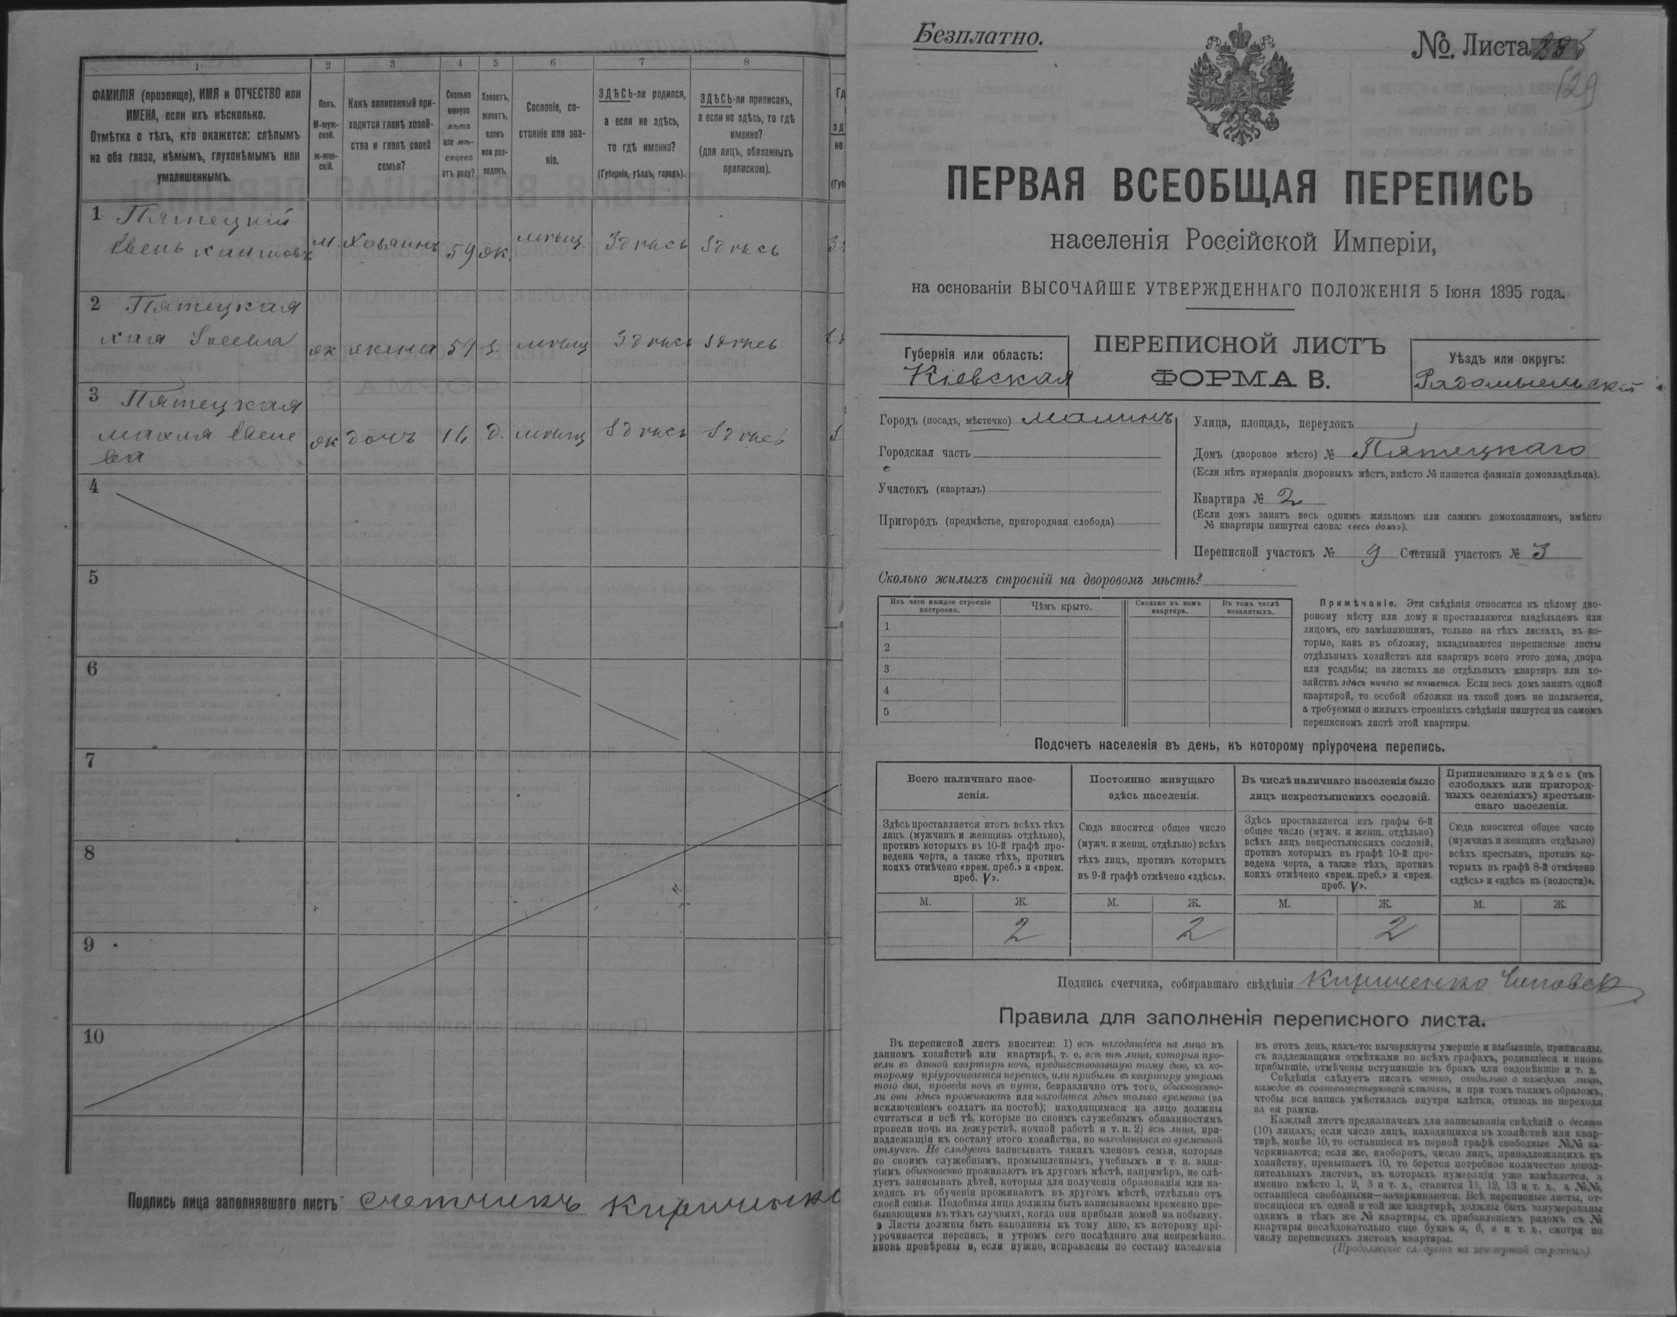 1 2 3 4 5 6 7 8
ФАМИЛІЯ (прозвище), ИМЯ и ОТЧЕСТВО или
ИМЕНА, если ихъ нѣсколько.
Отмѣтка о тѣхъ, кто окажется: слѣпымъ
на оба глаза, нѣмымъ, глухонѣмымъ или
умалишеннымъ.
Полъ.
М-муж-
ской.
ж-жен-
скій.
Какъ записанный при-
ходится главѣ хозяй-
ства и главѣ своей
семьи?
Сколько
минуло
лѣтъ
или мѣ-
сяцевъ
отъ роду?
Холостъ,
женатъ,
вдовъ
или раз-
веденъ.
Сословіе, со-
стояніе или зва-
ніе.
ЗДѢСЬ-ли родился,
а если не здѣсь,
то гдѣ именно?
(Губернія, уѣздъ, городъ).
ЗДѢСЬ-ли приписанъ,
а если не здѣсь, то гдѣ
именно?
(для лицъ, обязанныхъ
припискою).
1 Пятецкій
м. Хозяинъ 59 ж. мѣщ. Здѣсь Здѣсь
2 Пятецкая
жк жена 59 з. мѣщ Здѣсь Здѣсь
3 Пятецкая
жк дочь 16 д. мѣщ Здѣсь Здѣсь
4
5
6
7
8
9
10
Подпись лица заполнявшаго листъ счетчикъ
Безплатно.
№ Листа
129
ПЕРВАЯ ВСЕОБЩАЯ ПЕРЕПИСЬ
населенія Россійской Имперіи,
на основаніи ВЫСОЧАЙШЕ УТВЕРЖДЕННАГО ПОЛОЖЕНІЯ 5 Іюня 1895 года.
Губернія или область:
Кіевская
ПЕРЕПИСНОЙ ЛИСТЪ
ФОРМА В.
Уѣздъ или округъ:
Радомысльскій
Городъ (посадъ, мѣстечко) Малинъ
Городская часть
Участокъ (кварталъ)
Пригородъ (предмѣстье, пригородная слобода)
Улица, площадь, переулокъ
Домъ (дворовое мѣсто) № Пятецкаго
(Если нѣтъ нумераціи дворовыхъ мѣстъ, вмѣсто № пишется фамилія домовладѣльца).
Квартира № 2
(Если домъ занятъ весь однимъ жильцомъ или самимъ домохозяиномъ, вмѣсто
№ квартиры пишутся слова: «весь домъ»).
Переписной участокъ № 9 Счетный участокъ № 3
Сколько жилыхъ строеній на дворовомъ мѣстѣ?
Изъ чего каждое строеніе
построено.
Чѣмъ крыто.
Сколько въ немъ
квартиръ.
Въ томъ числѣ
незанятыхъ.
1
2
3
4
5
Примѣчаніе. Эти свѣдѣнія относятся къ цѣлому дво-
ровому мѣсту или дому и проставляются владѣльцемъ или
лицомъ, его замѣняющимъ, только на тѣхъ листахъ, въ ко-
торые, какъ въ обложку, вкладываются переписные листы
отдѣльныхъ хозяйствъ или квартиръ всего этого дома, двора
или усадьбы; на листахъ же отдѣльныхъ квартиръ или хо-
зяйствъ здѣсь ничего не пишется. Если весь домъ занятъ одной
квартирой, то особой обложки на такой домъ не полагается,
а требуемыя о жилыхъ строеніяхъ свѣдѣнія пишутся на самомъ
переписномъ листѣ этой квартиры.
Подсчетъ населенія въ день, къ которому пріурочена перепись.
Всего наличнаго насе-
ленія.
Здѣсь проставляется итогъ всѣхъ тѣхъ
лицъ (мужчинъ и женщинъ отдѣльно),
противъ которыхъ въ 10-й графѣ про-
ведена черта, а также тѣхъ, противъ
коихъ отмѣчено «врем. преб.» и «врем.
преб. V».
Постоянно живущаго
здѣсь населенія.
Сюда вносится общее число
(мужч. и женщ. отдѣльно) всѣхъ
тѣхъ лицъ, противъ которыхъ
въ 9-й графѣ отмѣчено «здѣсь».
Въ числѣ наличнаго населенія было
лицъ некрестьянскихъ сословій.
Здѣсь проставляется изъ графы 6-й
общее число (мужч. и женщ. отдѣльно)
всѣхъ лицъ некрестьянскихъ сословій,
противъ которыхъ въ графѣ 10-й про-
ведена черта, а также тѣхъ, противъ
коихъ отмѣчено «врем. преб.» и «врем.
преб. V».
Приписаннаго здѣсь (въ
слободахъ или пригород-
ныхъ селеніяхъ) крестьян-
скаго населенія.
Сюда вносится общее число
(мужчинъ и женщинъ отдѣльно)
всѣхъ крестьянъ, противъ ко-
торыхъ въ графѣ 8-й отмѣчено
«здѣсь» и «здѣсь къ (волости)».
М. Ж. М. Ж. М. Ж. М. Ж.
2 2 2
Подпись счетчика, собиравшаго свѣдѣнія Кириченко
Правила для заполненія переписного листа.
Въ переписной листъ вносятся: 1) всѣ находящіеся на лицо въ
данномъ хозяйствѣ или квартирѣ, т. е. всѣ тѣ лица, которыя про-
вели въ данной квартирѣ ночь, предшествовавшую тому дню, къ ко-
торому пріурочивается перепись, или прибыли въ квартиру утромъ
того дня, проведя ночь въ пути, безразлично отъ того, обыкновенно-
ли они здѣсь проживаютъ или находятся здѣсь только временно (за
исключеніемъ солдатъ на постоѣ); находящимися на лицо должны
считаться и всѣ тѣ, которые по своимъ служебнымъ обязанностямъ
провели ночь на дежурствѣ, ночной работѣ и т. п. 2) всѣ лица, при-
надлежащія къ составу этого хозяйства, но находящіяся во временной
отлучкѣ. Не слѣдуетъ записывать такихъ членовъ семьи, которые
по своимъ служебнымъ, промышленнымъ, учебнымъ и т. п. заня-
тіямъ обыкновенно проживаютъ въ другомъ мѣстѣ, напримѣръ, не слѣ-
дуетъ записывать дѣтей, которыя для полученія образованія или на-
ходясь въ обученіи проживаютъ въ другомъ мѣстѣ, отдѣльно отъ
своей семьи. Подобныя лица должны быть записываемы временно пре-
бывающими въ тѣхъ случаяхъ, когда они прибыли домой на побывку.
Листы должны быть заполнены къ тому дню, къ которому прі-
урочивается перепись, и утромъ сего послѣдняго дня непремѣнно
вновь провѣрены и, если нужно, исправлены по составу населенія
въ этотъ день, какъ-то: вычеркнуты умершіе и выбывшіе, приписаны,
съ надлежащими отмѣтками во всѣхъ графахъ, родившіеся и вновь
прибывшіе, отмѣчены вступившіе въ бракъ или овдовѣвшіе и т. д.
Свѣдѣнія слѣдуетъ писать четко, отдѣльно о каждомъ лицѣ,
каждое въ соотвѣтствующей клѣткѣ, и при томъ такимъ образомъ,
чтобы вся запись умѣстилась внутри клѣтки, отнюдь не переходя
за ея рамки.
Каждый листъ предназначенъ для записыванія свѣдѣній о десяти
(10) лицахъ; если число лицъ, находящихся въ хозяйствѣ или квар-
тирѣ, менѣе 10, то оставшіеся въ первой графѣ свободные №№ за-
черкиваются; если же, наоборотъ, число лицъ, принадлежащихъ къ
хозяйству, превышаетъ 10, то берется потребное количество допол-
нительныхъ листовъ, въ которыхъ нумерація уже измѣняется, а
именно вмѣсто 1, 2, 3 и т. д., ставится 11, 12, 13 и т. д., а №№,
оставшіеся свободными—зачеркиваются. Всѣ переписные листы, от-
носящіеся къ одной и той же квартирѣ, должны быть занумерованы
однимъ и тѣмъ же № квартиры, съ прибавленіемъ рядомъ съ №
квартиры послѣдовательно еще буквъ а, б, в и т. д., смотря по
числу переписныхъ листовъ квартиры.
(Продолженіе слѣдуетъ на четвертой страницѣ)